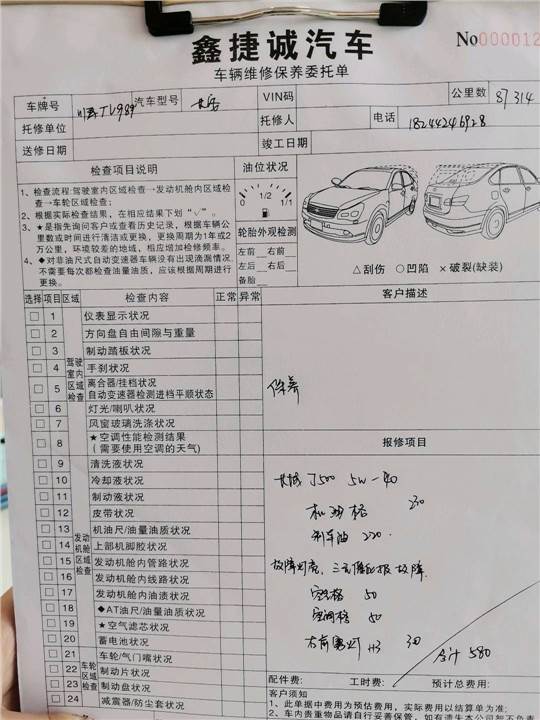 鑫捷诚汽车
No0000012
车辆维修保养委托单
车牌号 汽车型号 VIN码 公里数 87314
托修单位 托修人 电话 18244246928
送修日期 竣工日期
检查项目说明 油位状况
1、检查流程:驾驶室内区域检查→发动机舱内区域检
查→车轮区域检查;
2、根据实际检查结果，在相应结果下划“√”。
3、★是指先询问客户或查看历史记录，根据车辆公
里数或时间进行清洁或更换，更换周期为1年或2
万公里，环境较差的地域，相应增加检修频率。
4、◆对非油尺式自动变速器车辆没有出现滴漏情况
不需要每次都检查油量油质，应该根据周期进行
更换。
0 1/2 1/1
轮胎外观检测
左前□ 右前□
左后□ 右后□
备胎□
△刮伤 ○凹陷 ×破裂(缺装)
选择 项目 区域 检查内容 正常 异常 客户描述
驾驶室内区域检查
□ 1 仪表显示状况
□ 2 方向盘自由间隙与重量
□ 3 制动踏板状况
□ 4 手刹状况
□ 5 离合器/挂档状况
自动变速器检测进档平顺状态
保养
□ 6 灯光/喇叭状况
□ 7 风窗玻璃洗涤状况
□ 8 ★空调性能检测结果
(需要使用空调的天气)
报修项目
发动机舱区域检查
□ 9 清洗液状况
□ 10 冷却液状况
□ 11 制动液状况
□ 12 皮带状况
□ 13 机油尺/油量油质状况
□ 14 上部机脚胶状况
□ 15 发动机舱内管路状况
□ 16 发动机舱内线路状况
□ 17 发动机舱内油渍状况
□ 18 ◆AT油尺/油量油质状况
□ 19 ★空气滤芯状况
□ 20 蓄电池状况
车轮区域检查
□ 21 车轮/气门嘴状况
□ 22 制动片状况
□ 23 制动盘状况
□ 24 减震器/防尘套状况
长城 J500 5W-40
机油格 230
刹车油 220
空气格 50
空调格 50
H3 30
合计 580
配件费: 工时费: 预计总费用:
客户须知
1、此单据中费用为预估费用，实际费用以结算单为准;
2、车内贵重物品请自行妥善保管，如有遗失本公司恕不负责